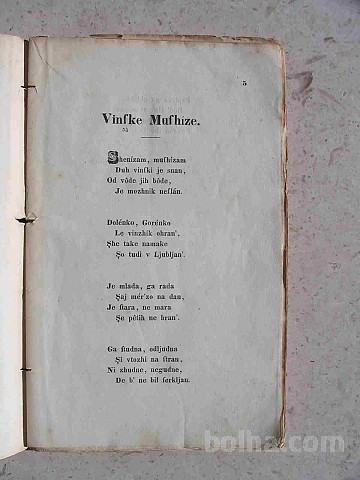 5
Vinſke Muſhíze.
Shenízam, muſhízam
Duh vinſki je snan,
Od vôde jih bôde,
Je mozhnik neſlán.
Dolénko, Gorénko
Le vinzhik ohran',
She take namake
So tudi v Ljubljan'.
Je mlada, ga rada
Saj mér'zo na dan,
Je ſtara, ne mara
Se pêtih ne bran'.
Ga ſtudna, odljudna
Si vtozhi na ſtran,
Ni zhudne, negudne,
De b' ne bil ſerkljan.
bolha.com